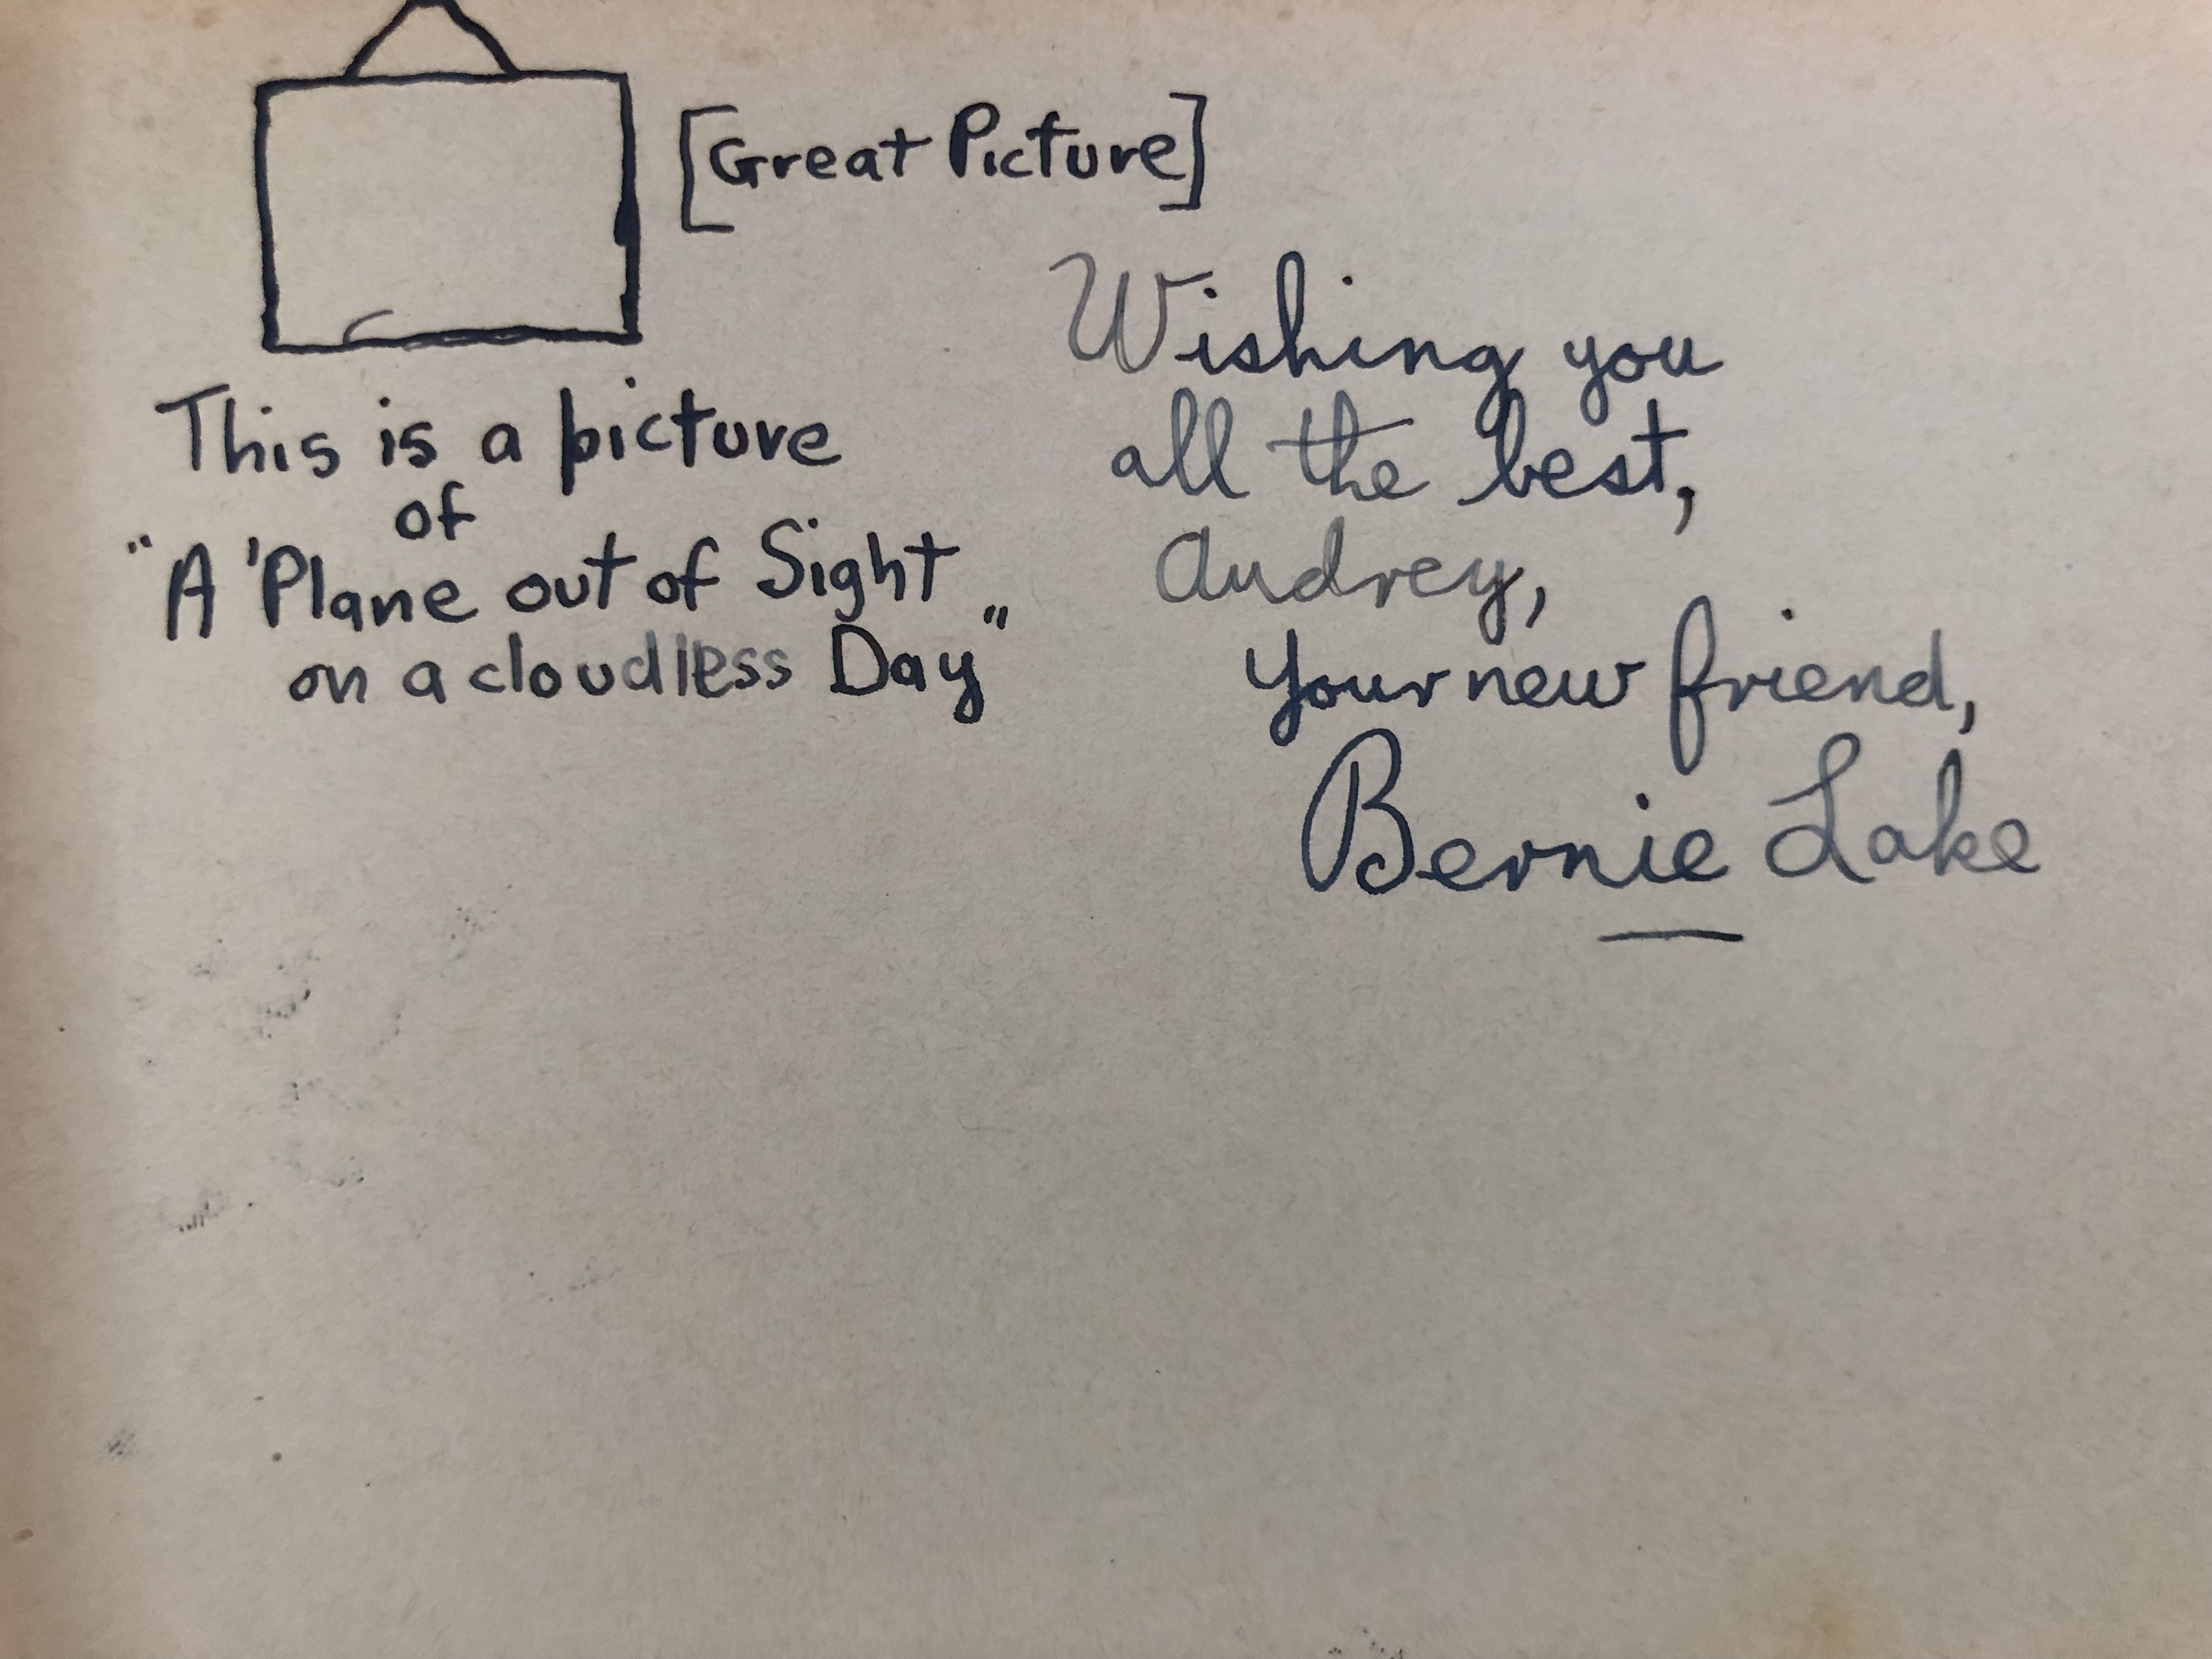 [Great Picture]
This is a picture
of
"A 'Plane out of Sight
on a cloudless Day"
Wishing you
all the best,
Audrey,
Your new friend,
Bernie Lake